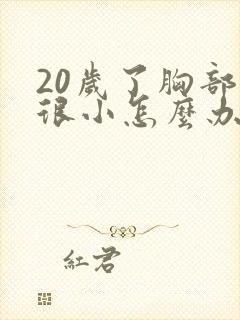 20歲了胸部
很小怎麼办
紅君